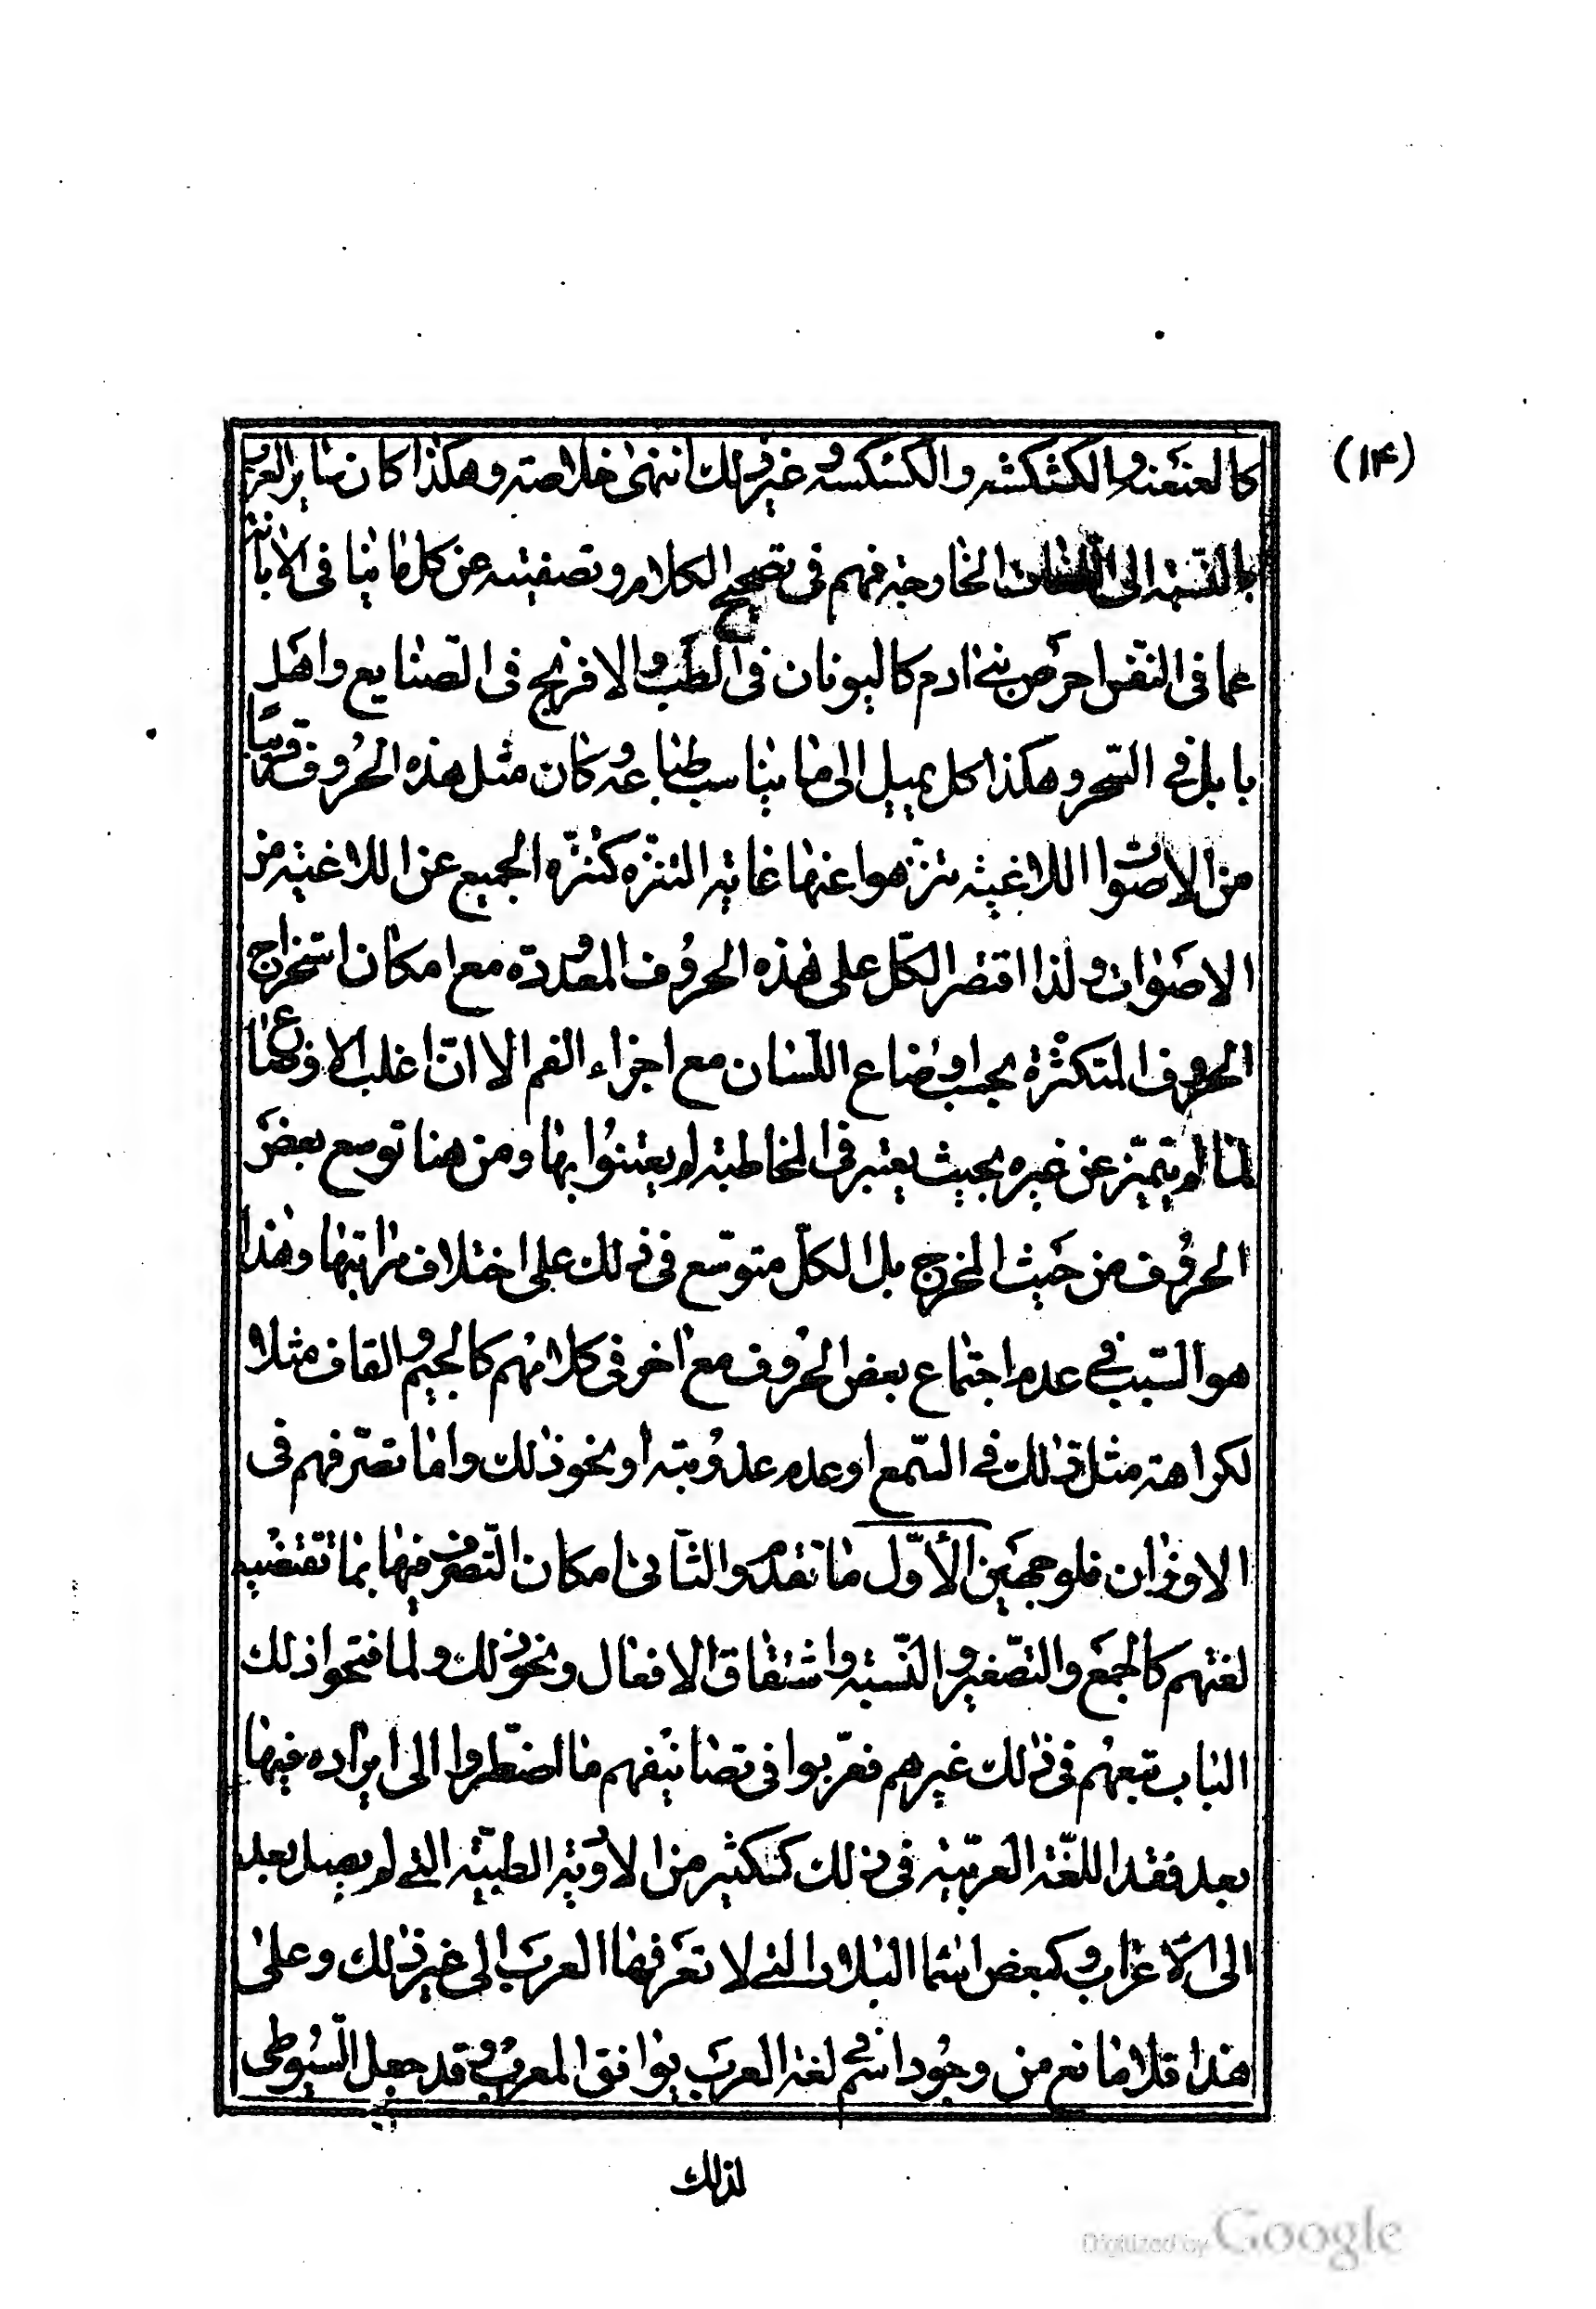 (١۴)
كالعنعنة والكشكشة والكسكسة وغير ذلك انتهى خلاصته وهكذا كان ساير العرب
بالنسبة الى اللغات الخارجة فهم فى تصحيح الكلام وتصفيته عن كل ما ينافى الابانة
عما فى النفس احرص بنى ادم كاليونان فى الطب والافرنج فى الصنايع واهل
بابل فى السحر وهكذا كل يميل الى ما يناسب طباعه وكان مثل هذه الحروف قريبا
من الاصوات اللاغية تنزهوا عنها غاية التنزه كتنزه الجميع عن اللاغية من
الاصوات ولذا اقتصر الكل على هذه الحروف المعدودة مع امكان استخراج
الحروف المتكثرة بحسب اوضاع اللسان مع اجزاء الفم الا ان اغلب الاوضاع
لما لم يتميز عن غيره بحيث يعتبر فى المخاطبة لم يعتنوا بها ومن هنا توسع بعض
الحروف من حيث المخرج بل الكل متوسع فى ذلك على اختلاف مراتبها وهذا
هو السبب فى عدم اجتماع بعض الحروف مع اخر فى كلامهم كالجيم والقاف مثلا
لكراهة مثل ذلك فى السمع او عدم عذوبته او نحو ذلك واما تصرفهم فى
الاوزان فلوجهين الأوّل ما تقدم والثانى امكان التصرف فيها بما تقتضيه
لغتهم كالجمع والتصغير والنسبة واشتقاق الافعال ونحو ذلك ولما فتحوا ذلك
الباب تبعهم فى ذلك غيرهم فعرّبوا فى تصانيفهم ما اضطروا الى ايراده فيها
بعد فقد اللغة العربية فى ذلك ككثير من الادوية الطبية التى لم يصل بعد
الى الاعراب وكبعض اسما البلاد التى لا تعرفها العرب الى غير ذلك وعلى
هذا فلا مانع من وجود اسم فى لغة العرب يوافق المعرب وقد جعل السيوطى
لذلك
Digitized by Google